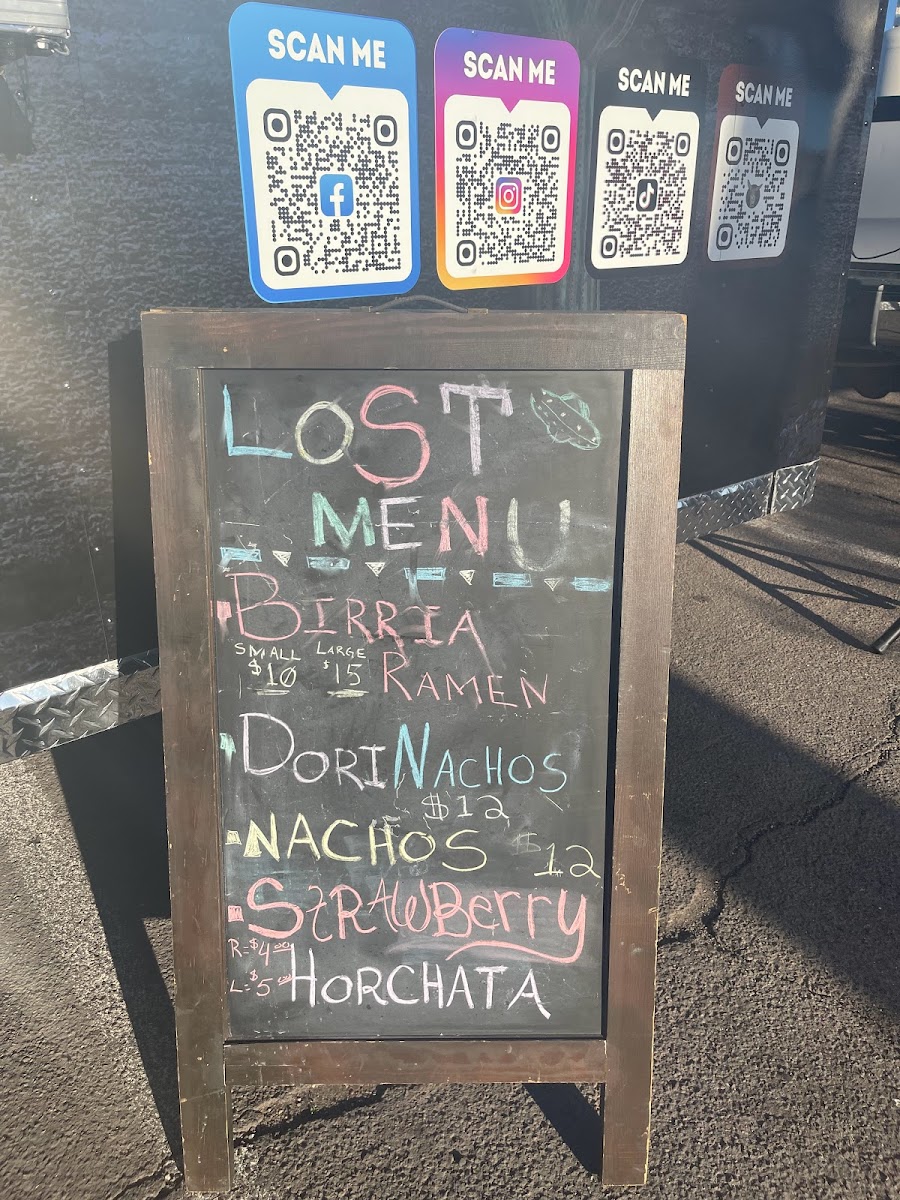 SCAN ME
SCAN ME
SCAN ME
SCAN ME
LOST
MENU
BIRRIA
SMALL LARGE
$10 $15
RAMEN
DORINACHOS
$12
NACHOS $12
STRAWBerry
R=$4.00
L=$5.00
HORCHATA